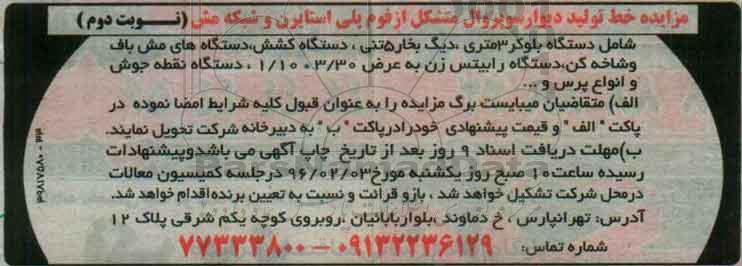 مزایده خط تولید دیوارسوپروال متشکل ازفوم پلی استایرن و شبکه مش (نوبت دوم)
شامل دستگاه بلوکر۳متری ،دیگ بخار۵تنی ، دستگاه کشش،دستگاه های مش باف
وشاخه کن،دستگاه رابیتس زن به عرض ۳/۳۰ و ۱/۱۰ ، دستگاه نقطه جوش
و انواع پرس و ...
الف) متقاضیان میبایست برگ مزایده را به عنوان قبول کلیه شرایط امضا نموده در
پاکت " الف " و قیمت پیشنهادی خودرادرپاکت " ب " به دبیرخانه شرکت تحویل نمایند.
ب)مهلت دریافت اسناد ۹ روز بعد از تاریخ چاپ آگهی می باشدوپیشنهادات
رسیده ساعت۱۰ صبح روز یکشنبه مورخ۹۶/۰۲/۰۳ درجلسه کمیسیون معاملات
درمحل شرکت تشکیل خواهد شد ، بازو قرائت و نسبت به تعیین برنده اقدام خواهد شد.
آدرس: تهرانپارس ، خ دماوند ،بلوارباباییان ،روبروی کوچه یکم شرقی پلاک ۱۲
شماره تماس: ۰۹۱۳۲۲۳۶۱۲۹ – ۷۷۳۳۳۸۰۰
۳۹۸۱۷۵۸۰ - ۳۳